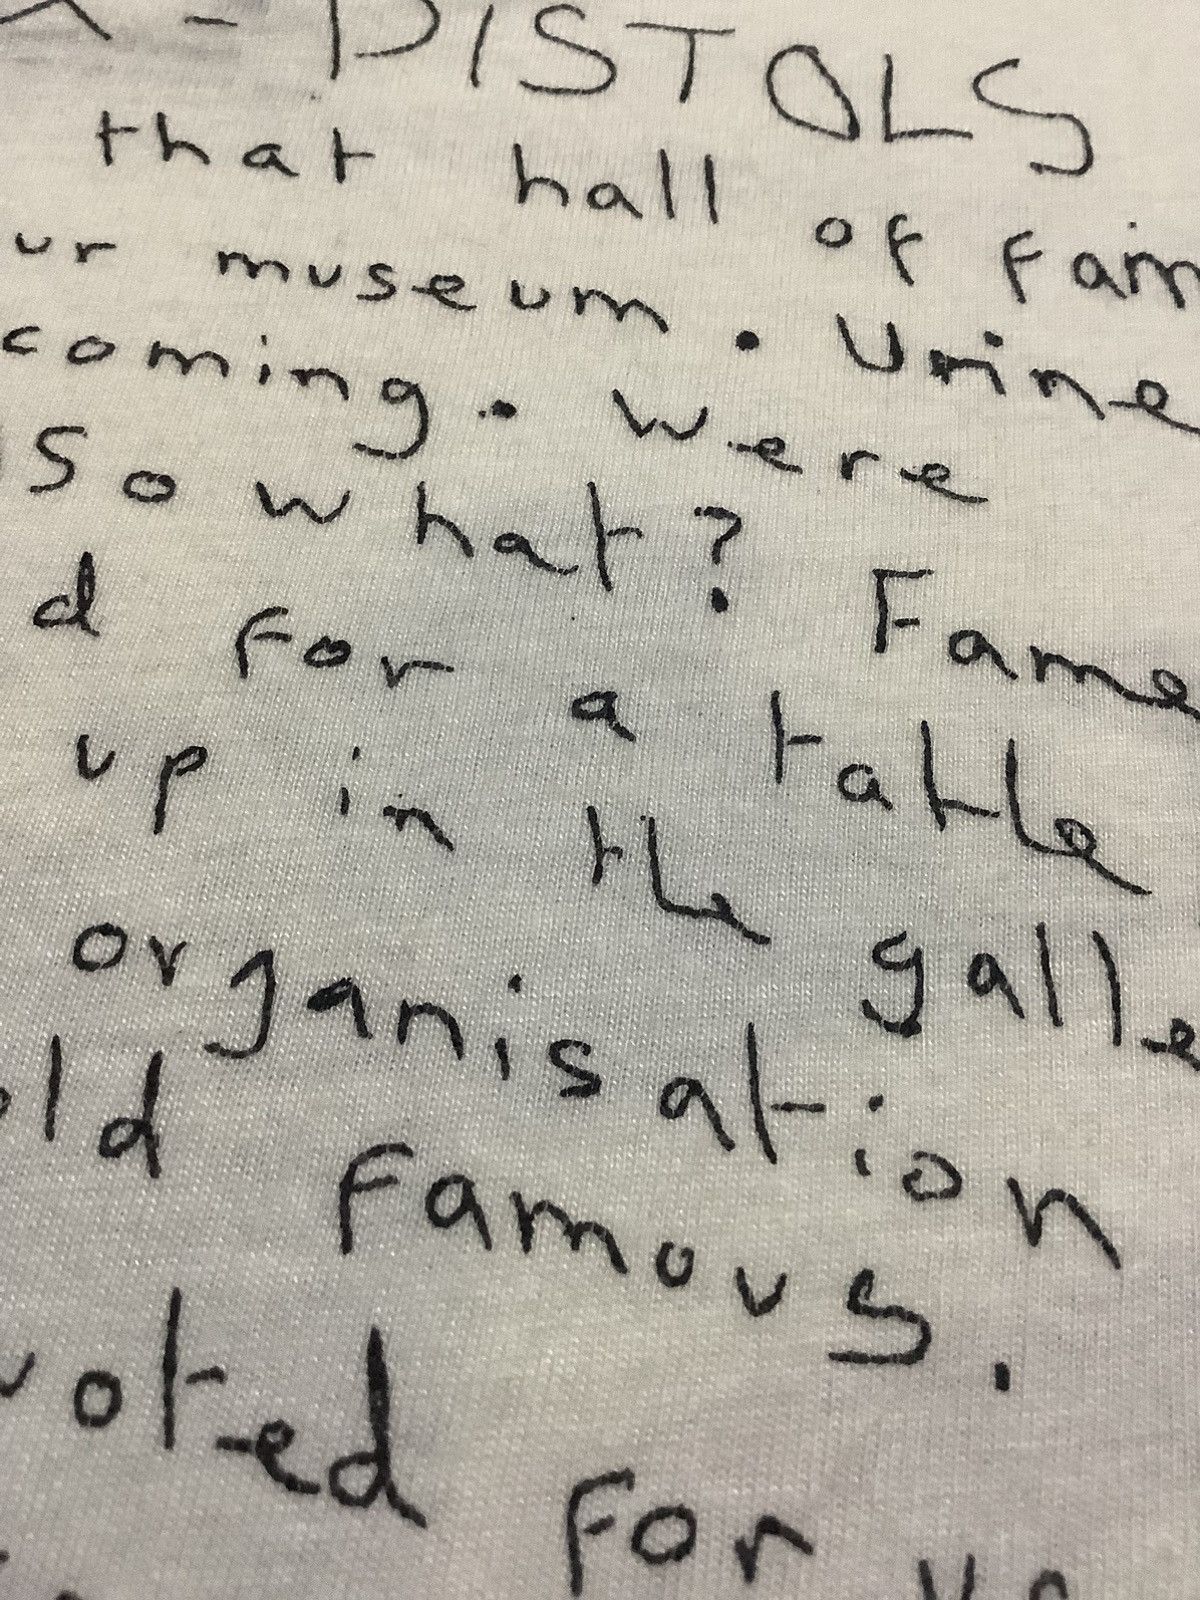 - PISTOLS
that hall of fam
ur museum. Urine
coming. were
So what? Fame
d for a table
up in the galle
organisation
old famous.
voted for